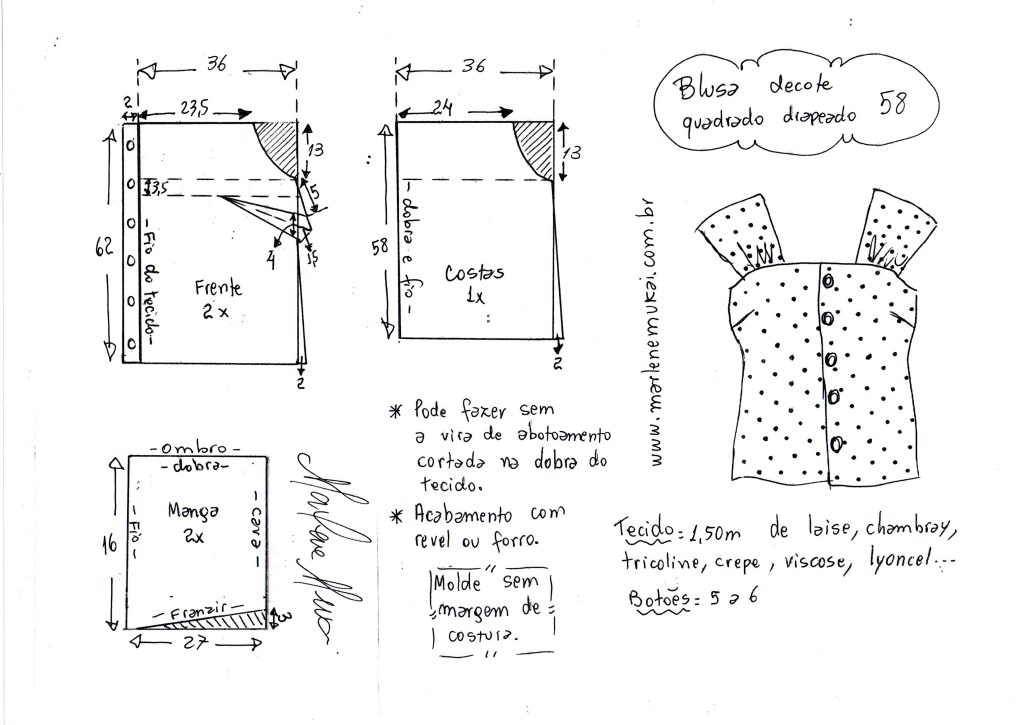 Blusa decote
quadrado drapeado 58
36
2
23,5
13
3,5
5
4
62
- Fio do tecido -
Frente
2x
2
36
24
13
58
- dobra e fio -
Costas
1x
2
www.marlenemukai.com.br
- ombro -
- dobra -
16
- Fio -
Manga
2x
- cava -
- Franzir -
3
27
* Pode fazer sem
a vira de abotoamento
cortada na dobra do
tecido.
* Acabamento com
revel ou forro.
Molde sem
margem de
costura.
Tecido = 1,50m de laise, chambray,
tricoline, crepe, viscose, lyoncel...
Botões = 5 a 6